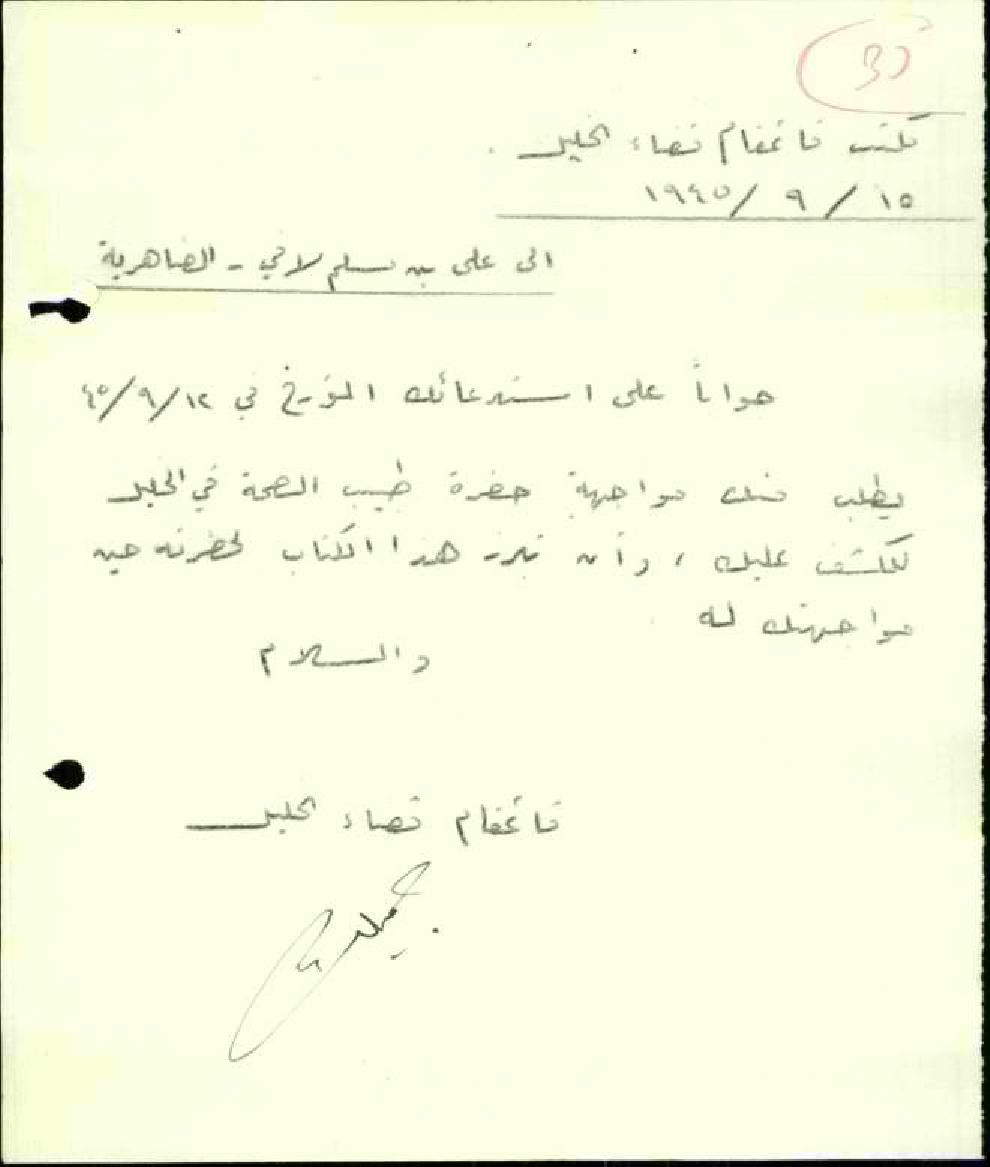 مكتب قائمقام قضاء الخليل.
١٥ / ٩ / ١٩٤٥
الى علي بن مسلم لافي - الضاهرية
جواباً على استدعائك المؤرخ في ١٢/٩/٤٥
يطلب منك مواجهة حضرة طبيب الصحة في الخليل
للكشف عليك ، وأن تبرز هذا الكتاب لحضرته حين
مواجهتك له .
والسلام
قائمقام قضاء الخليل